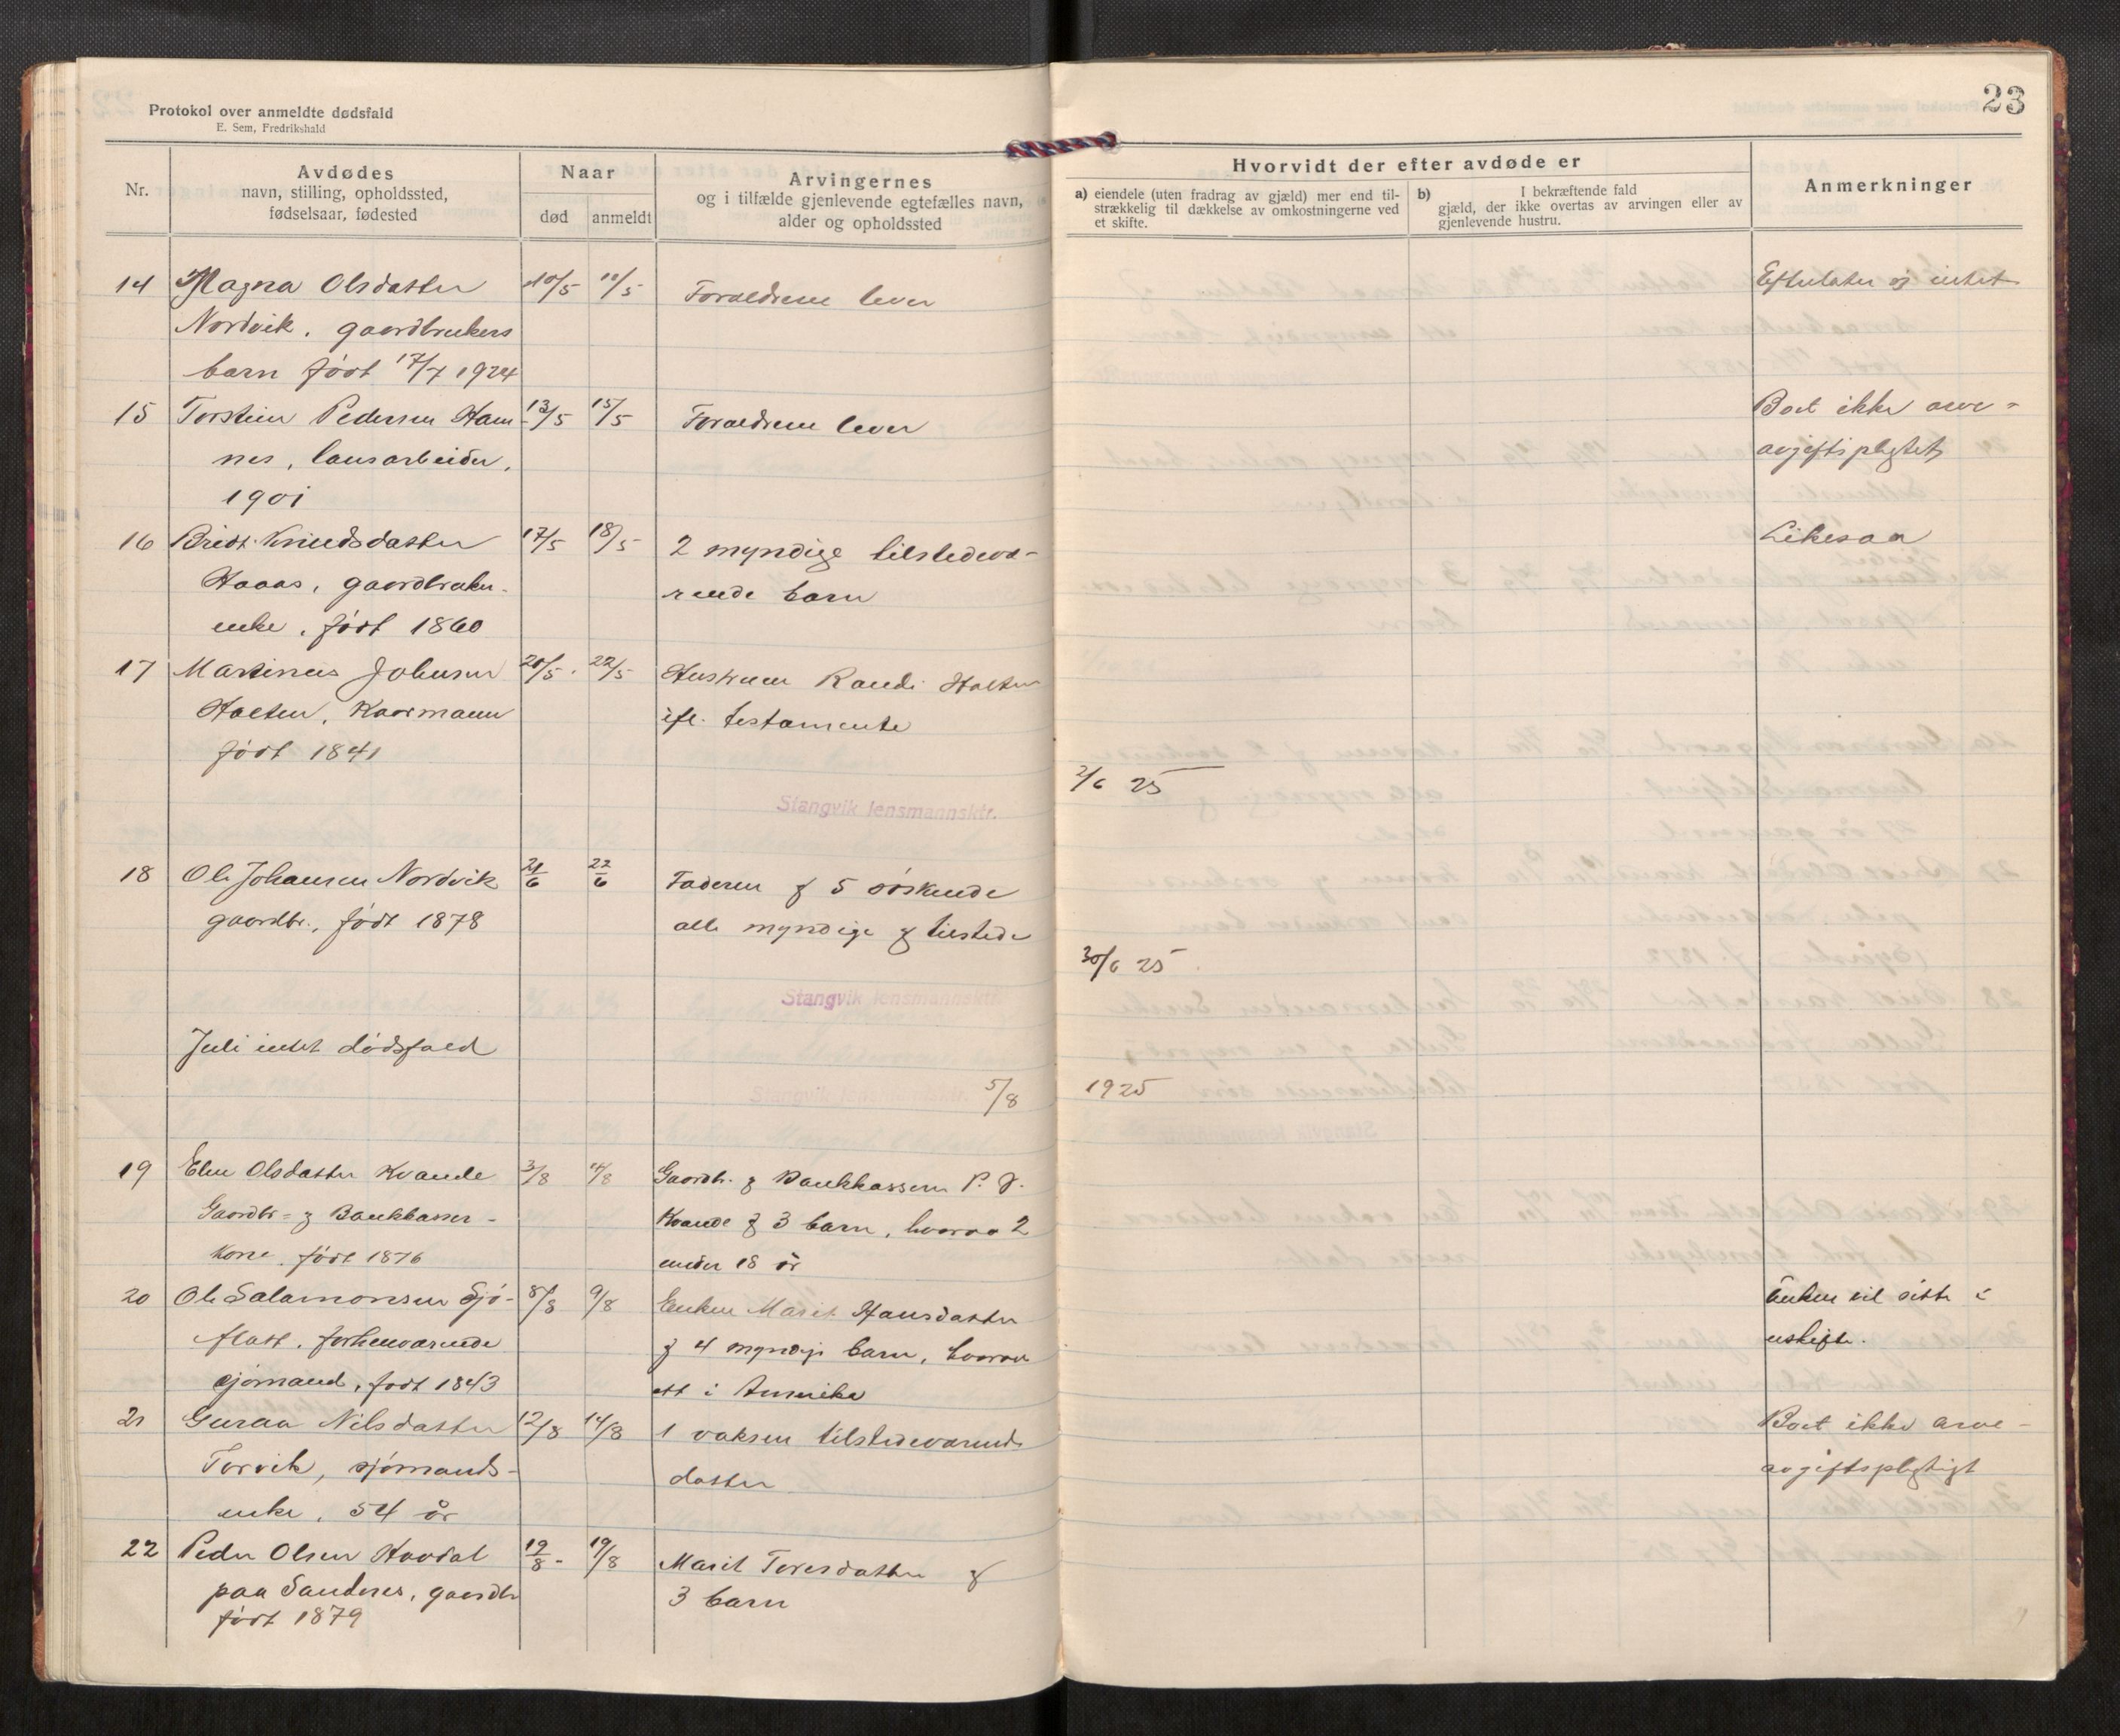 Protokol over anmeldte dødsfald
E. Sem, Fredrikshald
23
Nr.
Avdødes
navn, stilling, opholdssted,
fødselsaar, fødested
Naar
død
anmeldt
Arvingernes
og i tilfælde gjenlevende egtefælles navn,
alder og opholdssted
Hvorvidt der efter avdøde er
a) eiendele (uten fradrag av gjæld) mer end til-
strækkelig til dækkelse av omkostningerne ved
et skifte.
b) I bekræftende fald
gjæld, der ikke overtas av arvingen eller av
gjenlevende hustru.
Anmerkninger
14 Magna Olsdatter 10/5 11/5 Forældrene lever Efterlater sig intet
Nordvik, gaardbrukers
barn født 17/7 1924
15 Torstein Pedersen Ham- 13/5 15/5 Forældrene lever Boet ikke arve-
nes, lausarbeider, avgiftspligtet
1901
16 Bredt Knudsdatter 17/5 18/5 2 myndige tilstedevæ- Likesaa
Haaas, gaardbruker- rende barn
enke, født 1860
17 Martinus Johnsen 20/5 22/5 Hustruen Randi Halten
Halten, Kaarmann ifl. testamente
født 1841
2/6 25
Stangvik lensmannsktr.
18 Ole Johansen Nordvik 21/6 22/6 Faderen & 5 søskende
gaardbr., født 1878 alle myndige & tilstede
30/6 25
Stangvik lensmannsktr.
Juli intet dødsfald
Stangvik lensmannsktr. 5/8 1925
19 Elen Olsdatter Kvande 3/8 4/8 Gaardbr. & Bankkasserer P. J.
Gaardbr- & Bankkasser- Kvande & 3 barn, hvorav 2
kone, født 1876 under 18 år
20 Ole Salamonsen Sjø- 8/8 9/8 Enken Marit Hansdatter Enken vil sitte i
flatt, forhenværende & 4 myndige barn, hvorav uskifte.
sjømand, født 1843 ett i Amerika
21 Guraa Nilsdatter 12/8 14/8 1 voksen tilstedeværende Boet ikke arve-
Torvik, sjømands- datter avgiftspligtigt
enke, 54 år
22 Peder Olsen Hovdal 19/8 19/8 Marit Toresdatter &
paa Sandnes, gaardbr 3 barn
født 1879